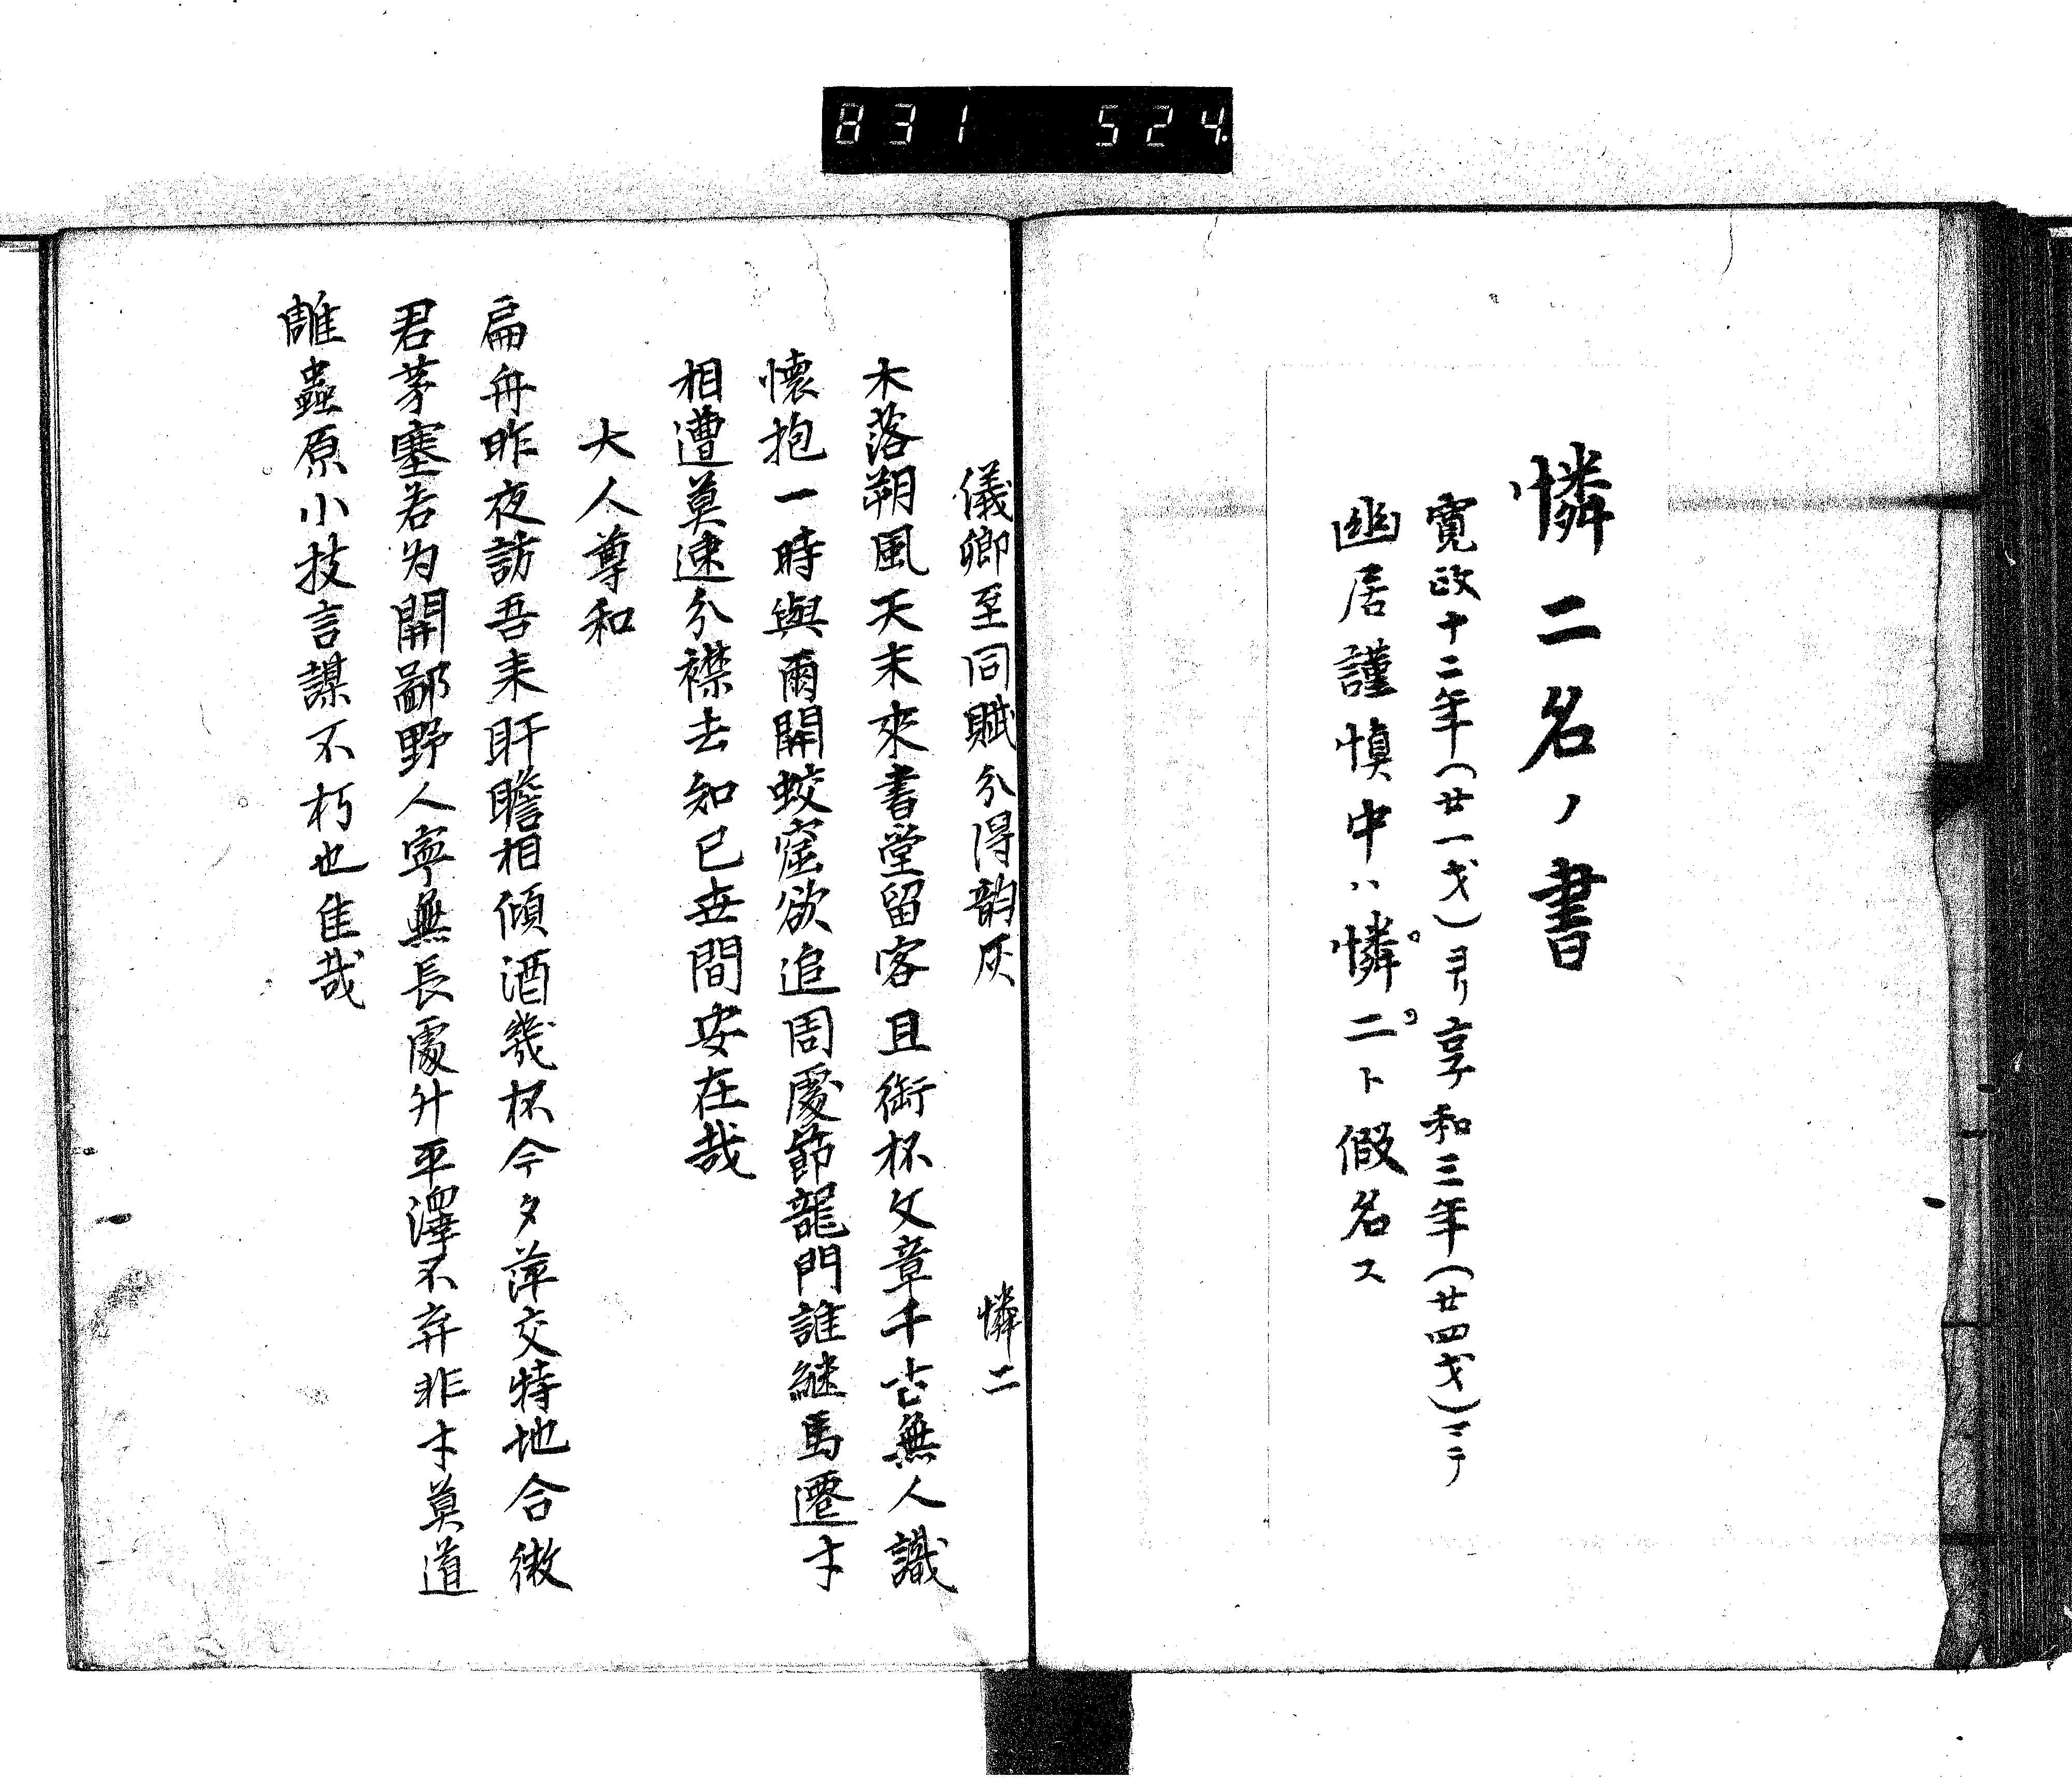 831 524
憐二名ノ書
寛政十二年(廿一才)ヨリ享和三年(廿四才)ニテ
幽居謹慎中ハ憐二ト假名ス
儀卿至同賦分得韵灰 憐二
木落朔風天末來書堂留客且銜杯文章千古無人識
懷抱一時與爾開蛟窟欲追周處節龍門誰継馬遷才
相遭莫速分襟去知已世間安在哉
大人尊和
扁舟昨夜訪吾来盱瞻相傾酒幾杯今夕萍交特地合微
君茅塞若为開鄙野人寧無長處升平澤不弃非才莫道
雕蟲原小技言謀不朽也隹哉